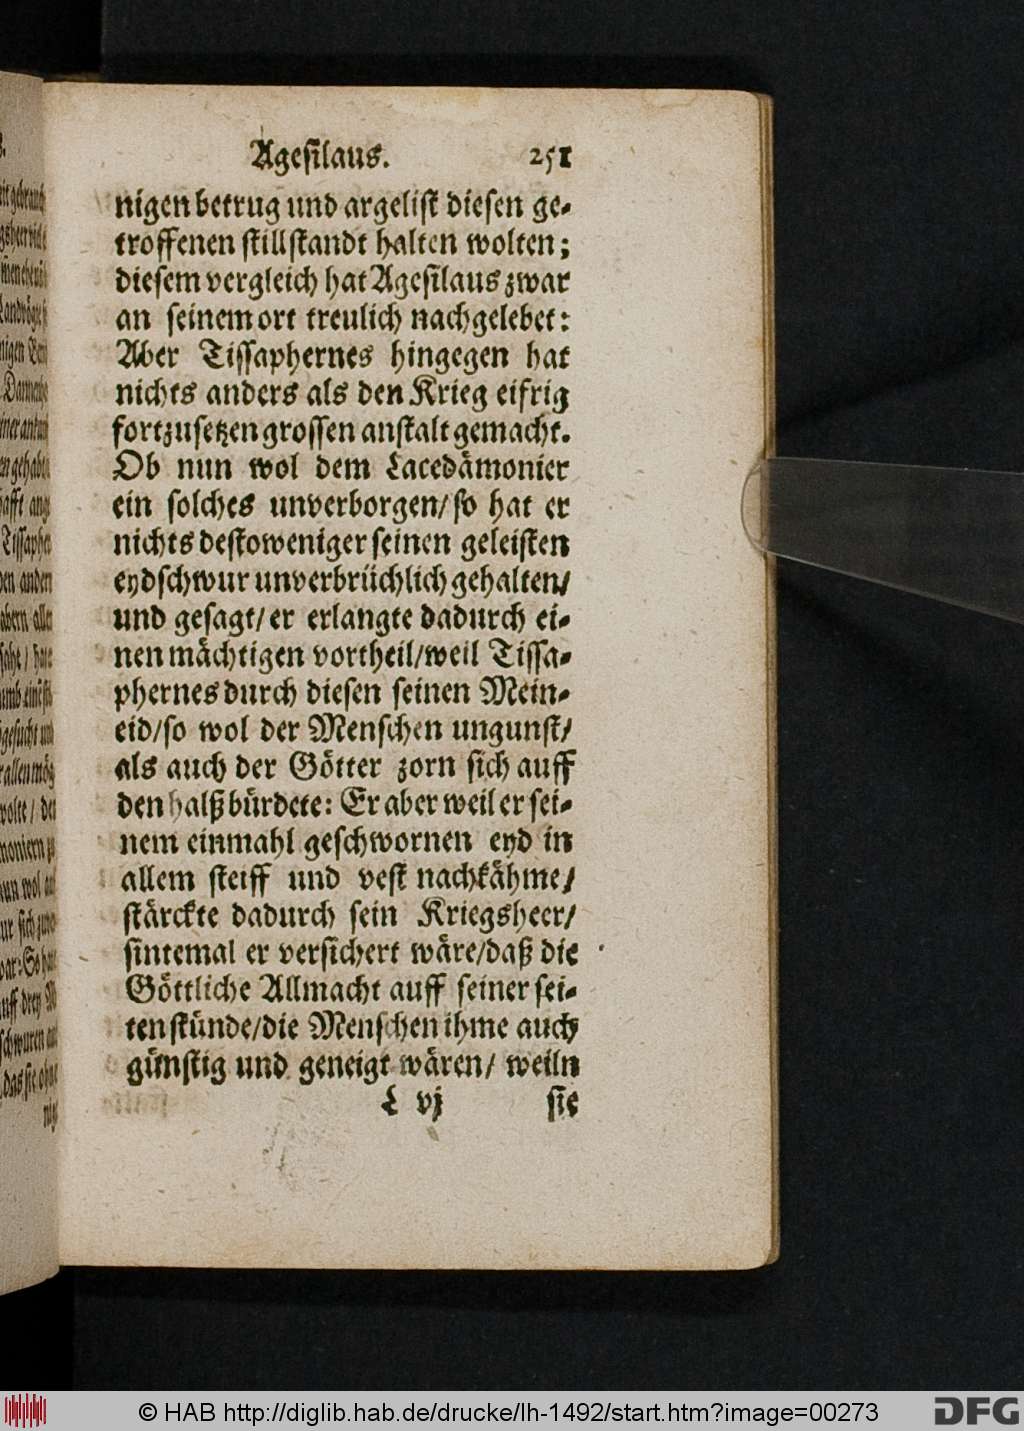 Agesilaus. 251
nigen betrug und argelist diesen ge-
troffenen stillstandt halten wolten;
diesem vergleich hat Agesilaus zwar
an seinem ort treulich nachgelebet:
Aber Tissaphernes hingegen hat
nichts anders als den Krieg eifrig
fortzusetzen grossen anstalt gemacht.
Ob nun wol dem Lacedämonier
ein solches unverborgen/ so hat er
nichts destoweniger seinen geleisten
eydschwur unverbrüchlich gehalten/
und gesagt/ er erlangte dadurch ei-
nen mächtigen vortheil/ weil Tissa-
phernes durch diesen seinen Mein-
eid/ so wol der Menschen ungunst/
als auch der Götter zorn sich auff
den halß bürdete: Er aber weil er sei-
nem einmahl geschwornen eyd in
allem steiff und vest nachkähme/
stärckte dadurch sein Kriegsheer/
sintemal er versichert wäre/ daß die
Göttliche Allmacht auff seiner sei-
ten stünde/ die Menschen ihme auch
günstig und geneigt wären/ weiln
L vj sie
© HAB http://diglib.hab.de/drucke/lh-1492/start.htm?image=00273
DFG